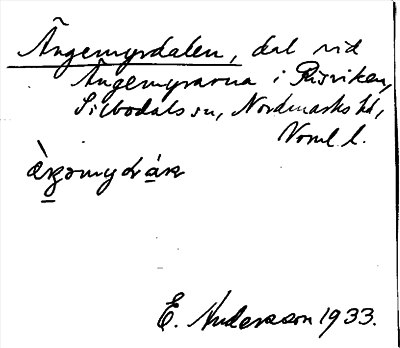 Ängemyrdalen, dal vid
Ängemyrarna i Räsviken,
Silbodals sn, Nordmarks hd,
Vrml. l.
E. Andersson 1933.